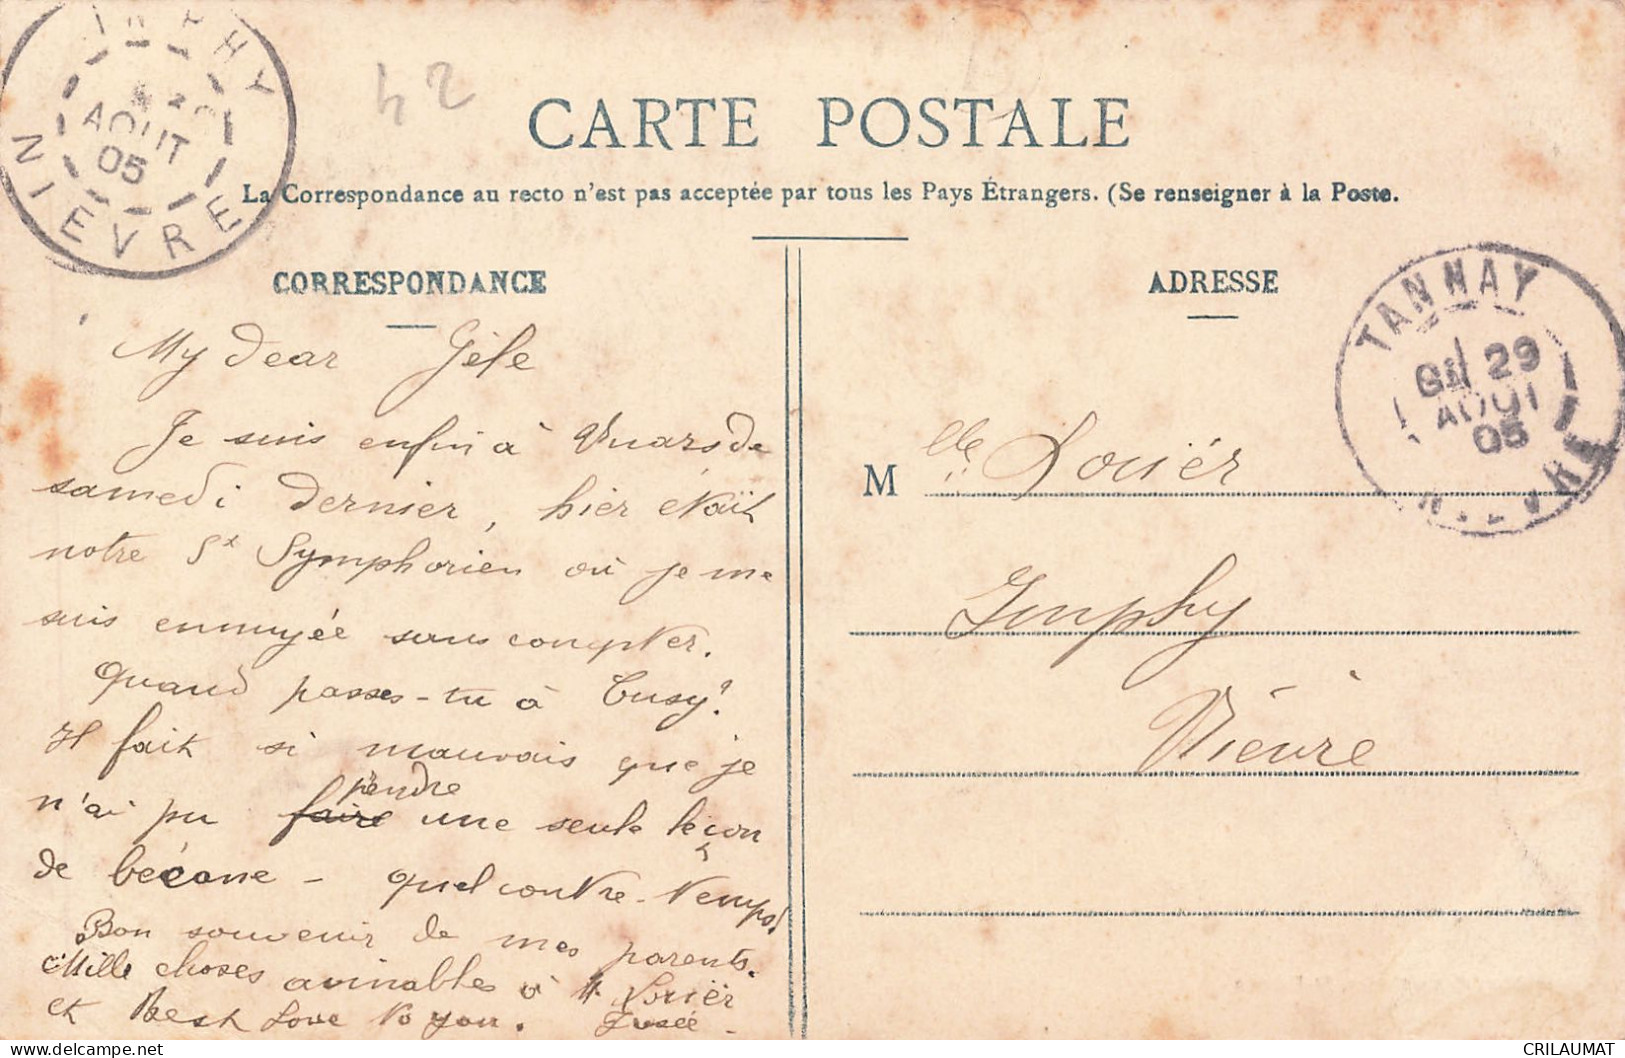 IMPHY
AOUT
05
NIEVRE
42
CARTE POSTALE
La Correspondance au recto n'est pas acceptée par tous les Pays Étrangers. (Se renseigner à la Poste.
CORRESPONDANCE
My dear
Je suis enfin à
samedi dernier, hier était
notre St Symphorien où je me
suis ennuyée sans compter.
Quand passes-tu à Cusy?
Il fait si mauvais que je
n'ai pu faire prendre une seule leçon
de bécane - quel contre-temps!
Bon souvenir de mes parents.
Mille choses aimables à M.
et Best Love to you.
ADRESSE
TANNAY
29
AOUT
05
NIEVRE
Mlle
Imphy
Nièvre
CRILAUMAT